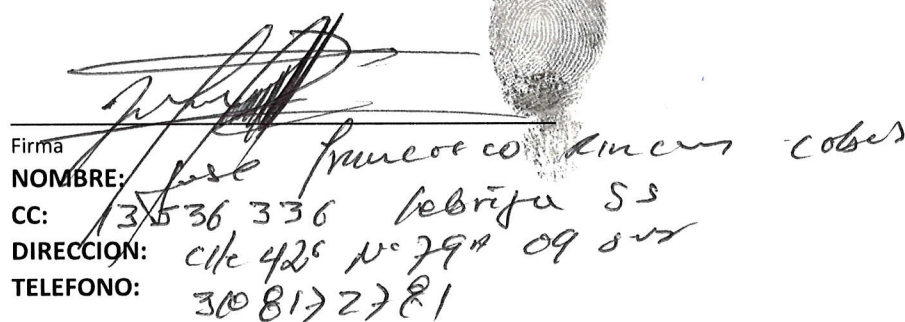 Firma
NOMBRE: Jose Francisco Rincon Cobos
CC: 13536 336 Lebrija SS
DIRECCION: Clle 42G Nº 79A 09 sur
TELEFONO: 3108172781